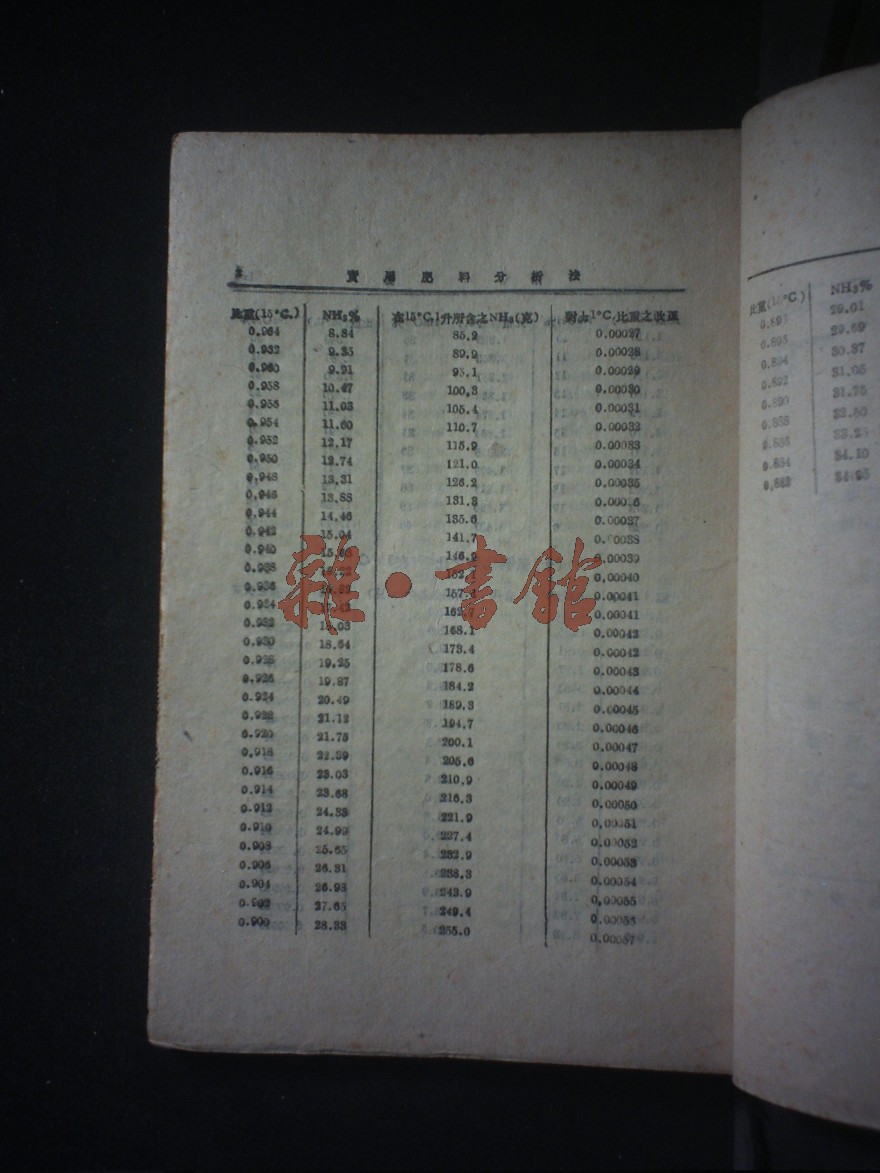 2 實用肥料分析法
比重(15°C.) NH₃% 在15°C.1升所含之NH₃(克) 對±1°C.比重之改正
0.964 8.84 85.2 0.00027
0.962 9.35 89.9 0.00028
0.960 9.91 95.1 0.00029
0.958 10.47 100.3 0.00030
0.956 11.03 105.4 0.00031
0.954 11.60 110.7 0.00032
0.952 12.17 115.9 0.00033
0.950 12.74 121.0 0.00034
0.948 13.31 126.2 0.00035
0.946 13.88 131.3
0.944 14.46 135.6 0.00037
0.942 15.04 141.7 0.00038
0.940 146.9 0.00039
0.938 0.00040
0.936 0.00041
0.934 0.00041
0.932 18.03 168.1 0.00042
0.930 18.64 173.4 0.00042
0.928 19.25 178.6 0.00043
0.926 19.87 184.2 0.00044
0.924 20.49 189.3 0.00045
0.922 21.12 194.7 0.00046
0.920 21.75 200.1 0.00047
0.918 22.39 205.6 0.00048
0.916 23.03 210.9 0.00049
0.914 23.68 216.3 0.00050
0.912 24.33 221.9 0.00051
0.910 24.99 227.4 0.00052
0.908 25.65 232.9 0.00053
0.906 26.31 238.3 0.00054
0.904 26.98 243.9 0.00055
0.902 27.65 249.4 0.00056
0.900 28.33 255.0 0.00057
雜·書館
比重(15°C.) NH₃%
29.01
29.69
0.894 30.37
0.892 31.05
0.890 31.75
32.50
0.884 34.10
0.882 34.95